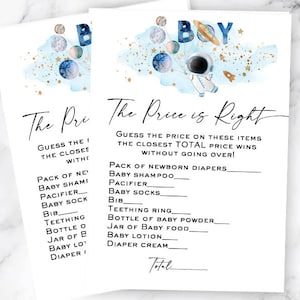 BOY
The Price is Right
Guess the price on these items
the closest TOTAL price wins
without going over!
Pack of newborn diapers
Baby shampoo
Pacifier
Baby socks
Bib
Teething ring
Bottle of baby powder
Jar of Baby food
Baby lotion
Diaper cream
Total
B
The Pri
Guess the
the close
with
Pack of ne
Baby sham
Pacifier
Baby sock
Bib
Teething
Bottle o
Jar of Ba
Baby loti
Diaper c